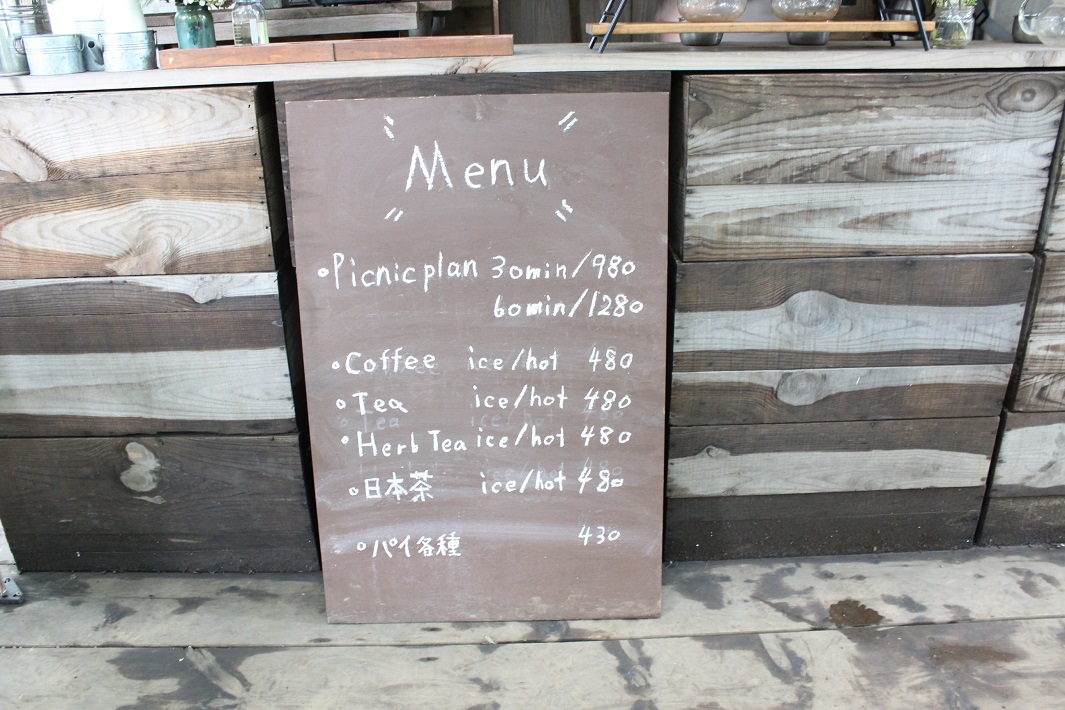 Menu
Picnic plan 30min/980
60min/1280
Coffee ice/hot 480
Tea ice/hot 480
Herb Tea ice/hot 480
日本茶 ice/hot 480
パイ各種 430